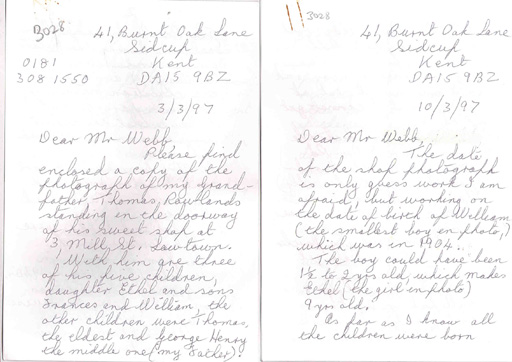 B028
41, Burnt Oak Lane
Sidcup
0181 Kent
308 1550 DA15 9BZ
3/3/97
Dear Mr Webb
Please find
enclosed a copy of the
photograph of my Grand-
father, Thomas, Rowlands
standing in the doorway
of his sweet shop at
3 Mill, St. Lowtown.
With him are three
of his five children,
daughter Ethel and sons
Frances and William, the
other children were Thomas,
the eldest and George Henry
the middle one (my Father).
B028
41, Burnt Oak Lane
Sidcup
Kent
DA15 9BZ
10/3/97
Dear Mr Webb,
The date
of the shop photograph
is only guess work I am
afraid, but working on
the date of birth of William
(the smallest boy in photo,)
which was in 1904.
The boy could have been
1½ to 2 yrs old, which makes
Ethel (the girl in photo)
9 yrs old.
As far as I know all
the children were born